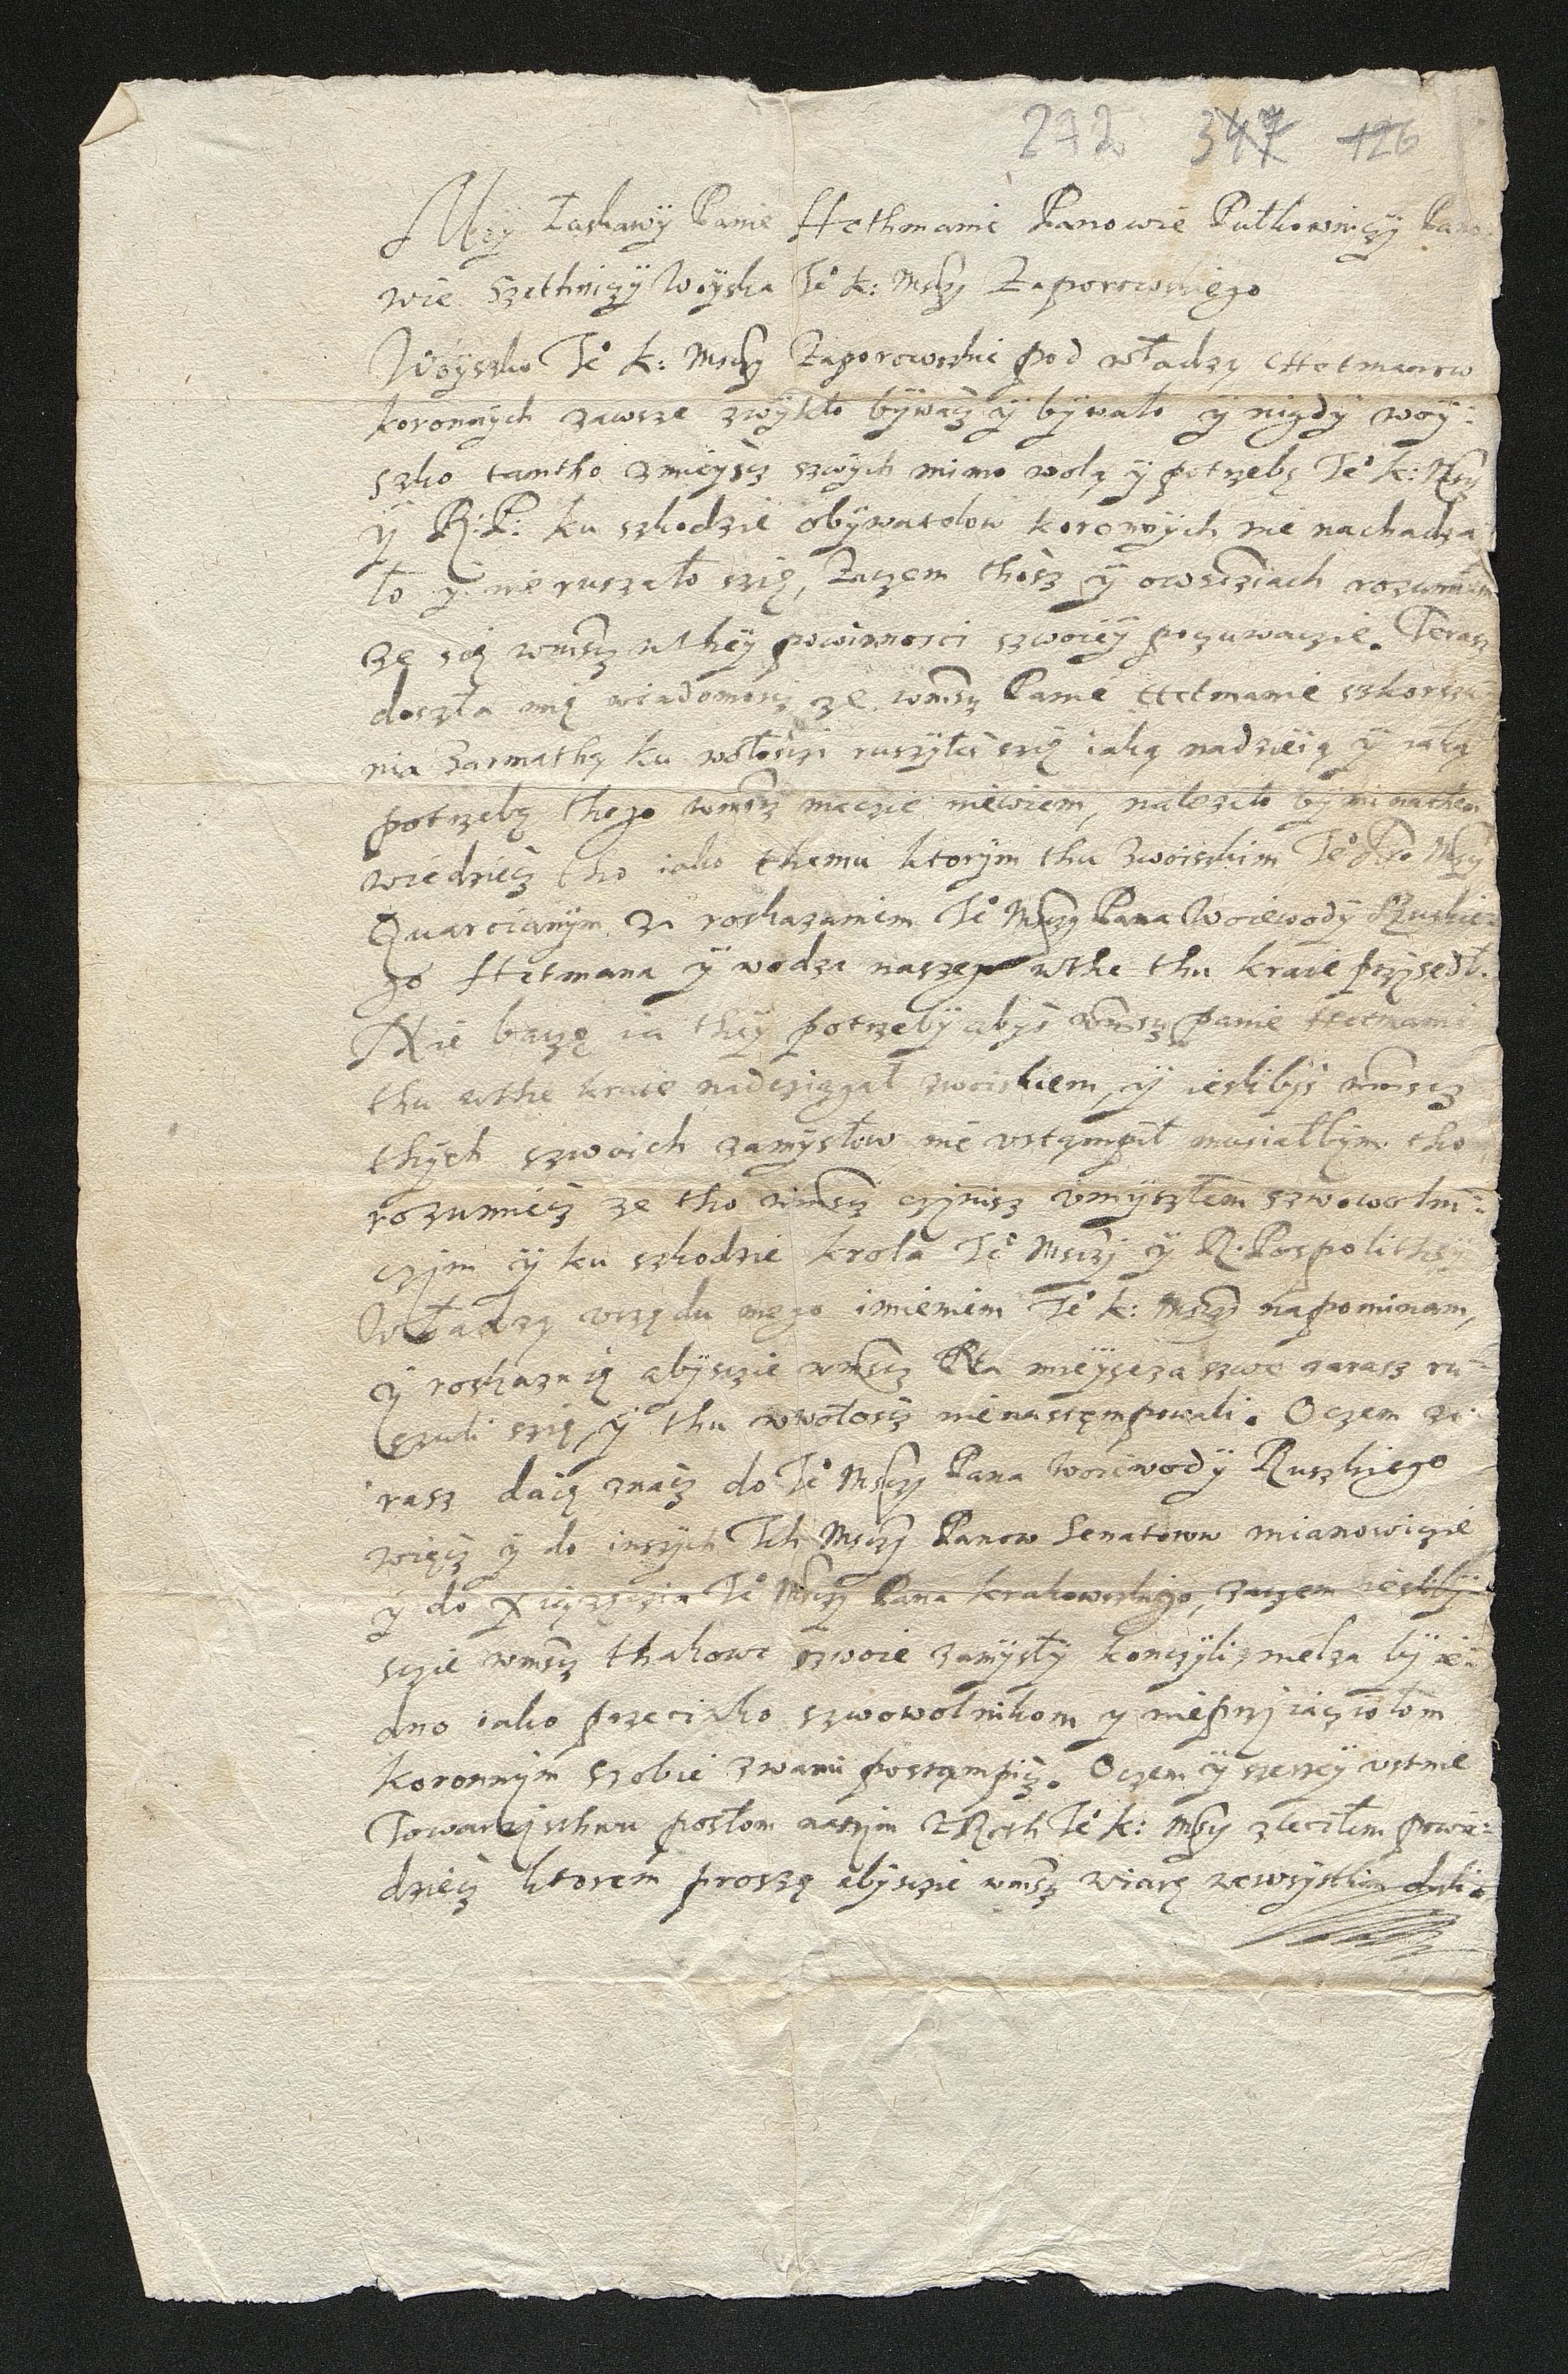 272 347 126
Mɵy Łaskawÿ Panie Hethmanie Panowie Pułkownicÿ Pano
wie Szethnicÿ Woÿska Je° K: Msczÿ Zaporowskiego
Woÿszko Je° K: Msczÿ Zaporowskie pod władzą Hetmanow
koronnÿch zawsze zwÿkło bÿwacz ÿ bÿwało ÿ nigdÿ woÿ:
szko tamtho zmieÿscz szwÿch mimo wolą ÿ potrzebę Je° K: Msczÿ
ÿ R: P: ku szkodzie obÿwatelow koronnÿch nie nachadza
ło ÿ nie ruszało szię, Zaczem thosz ÿ owscziach rozumiem
ze się wmscz wtheÿ powinnosci szwoieÿ poczuwaczie. Terasz
doszła mię wiadomoscz ze wmscz Panie Hetmanie szkorsu
nia zarmathą ku wołosczi ruszÿłes szię iaką nadzieią ÿ iaką
potrzebą thego wmscz maczie niewiem, należało bÿ mi nathen
wiedziecz tho iako themu ktorÿm thu zwoiskim Je° Kro Msczÿ
Quarcianÿm za roskazaniem Je° Msczÿ Pana Woiewodÿ Ruskie:
go Hetmana ÿ wodza naszego wthe thu kraie przÿsedł.
Nie baczę ia theÿ potrzebÿ abÿs wmscz panie Hetmanie
thu wthe kraie nadcziągał zwoiskiem, ÿ ieslibÿs wmscz
thÿch szwoich zamÿsłow nie vstąmpił musiałbÿm tho
rozumiecz ze tho wmscz czÿnisz vmÿszłem szwowolni:
czÿm ÿ ku szkodzie krola Je° Msczÿ ÿ R. Pospolitheÿ
Władzą vrzędu mego imieniem Je° K: Msczÿ napominam,
ÿ roskazuię abÿsczie wmscz Na mieÿscza szwe zarasz ru:
szali szię, ÿ thu wwołoscz nienastęmpowali. Oczem za:
rasz daię znacz do Je° Msczÿ Pana Woiewodÿ Ruszkiego
więcz ÿ do inszÿch Ich Msczÿ Panow Senatorow mianowiczie
ÿ do Xiązęczia Je° Msczÿ Pana krakowskiego, zaczem ieslibÿ
sczie wmscz thakowe szwoie zamÿsłÿ konczÿli, nielza bÿ ie:
dno iako przeciwko szwowolnikom ÿ nieprzÿiacziołom
koronnÿm szobie zwami postąmpicz. Oczem ÿ szerzeÿ vstnie
Towarzÿsthwu posłom naszÿm Je° K: Msczÿ zleciłem powie:
dziecz ktorem proszę abÿsczie wmscz wiarę wewszÿstkim dali.